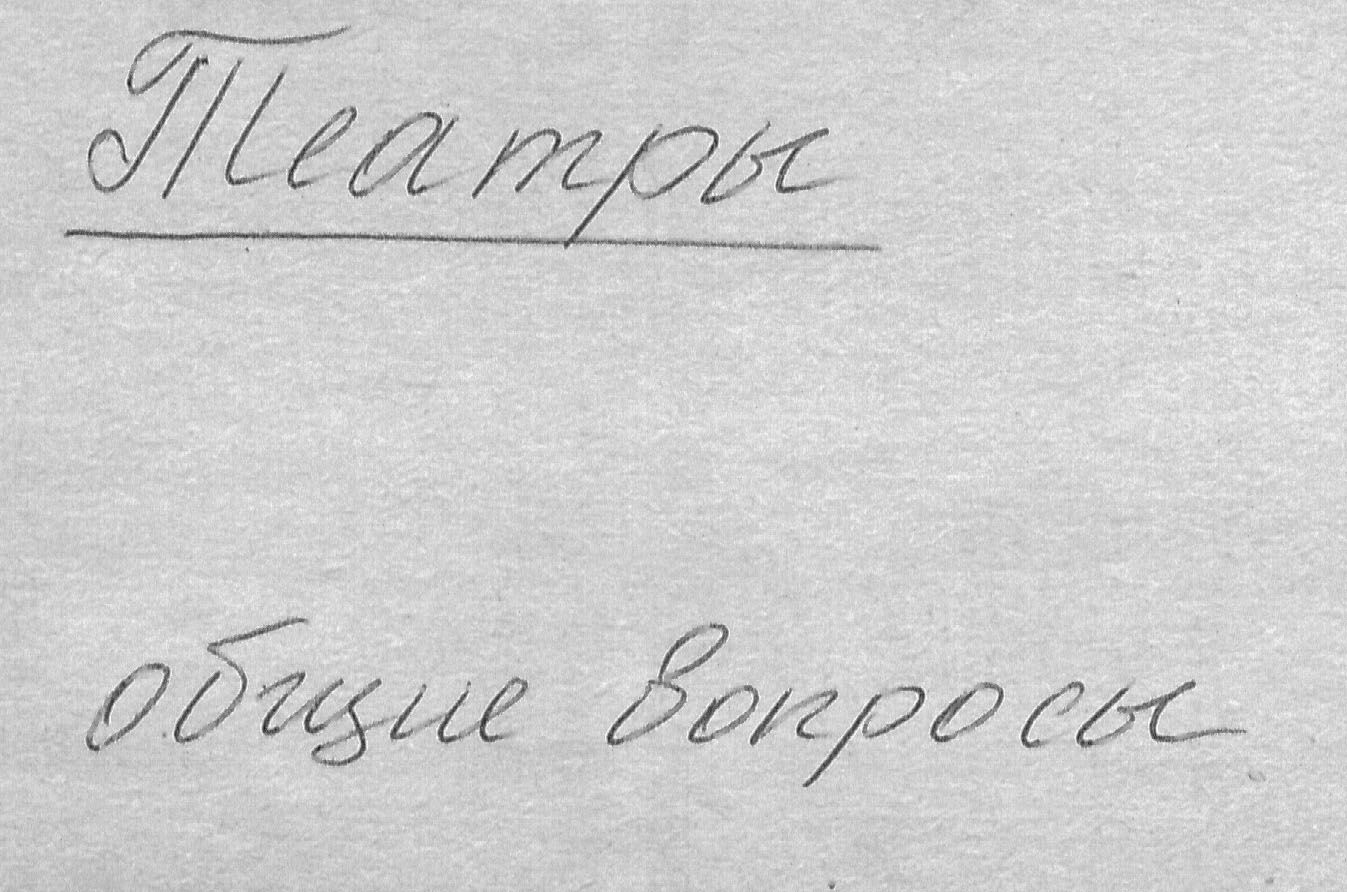 Театры
общие вопросы